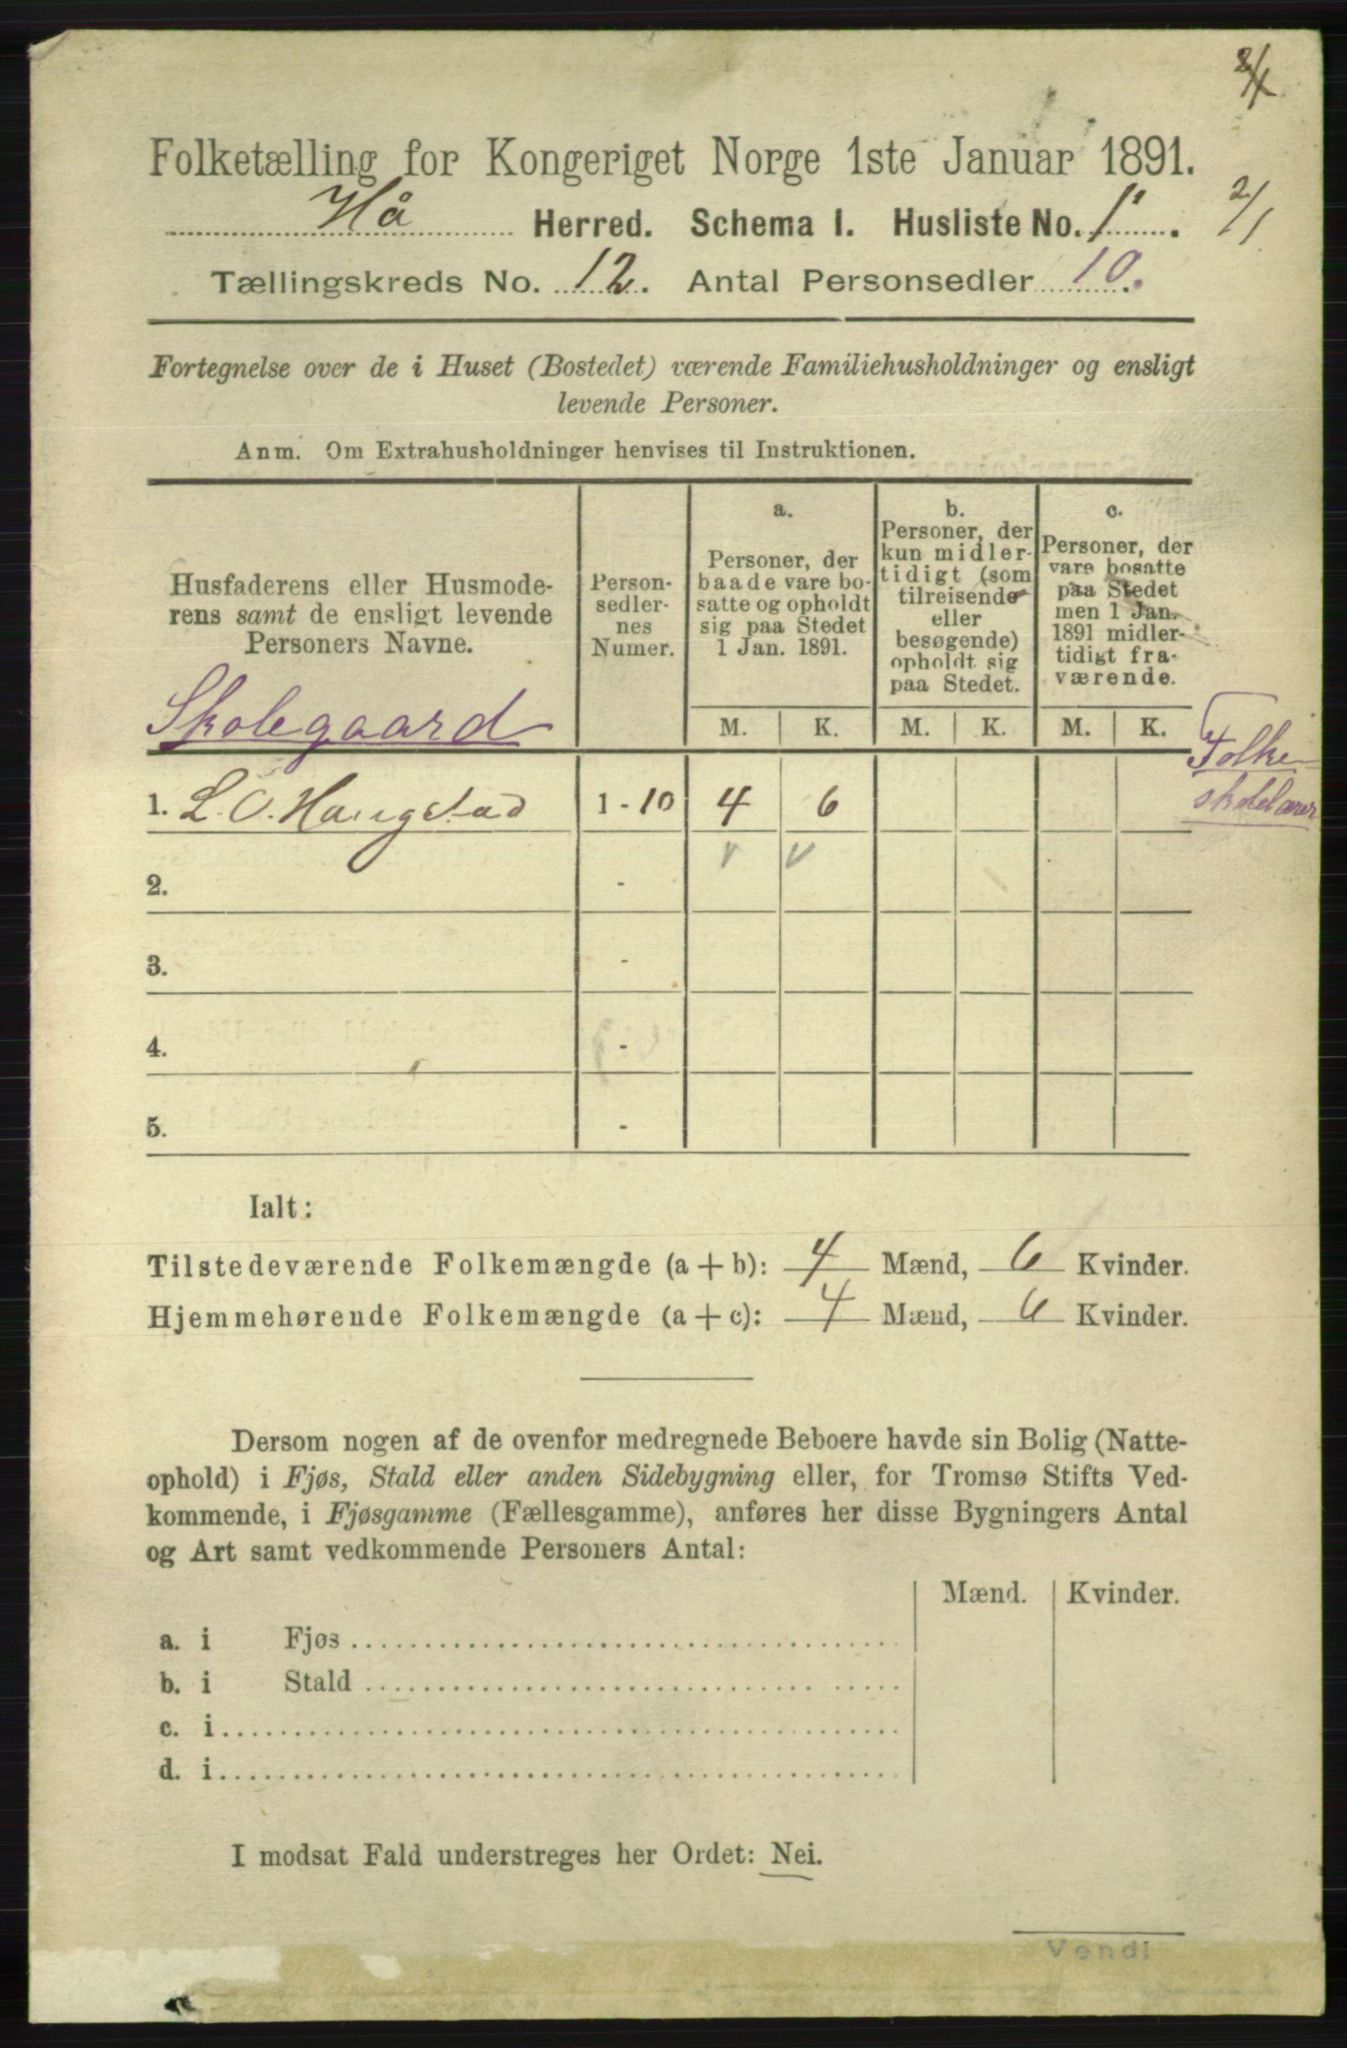 2/1
Folketælling for Kongeriget Norge 1ste Januar 1891.
Hå Herred. Schema I. Husliste No. 1. 2/1
Tællingskreds No. 12. Antal Personsedler 10.
Fortegnelse over de i Huset (Bostedet) værende Familiehusholdninger og ensligt
levende Personer.
Anm. Om Extrahusholdninger henvises til Instruktionen.
Husfaderens eller Husmode-
rens samt de ensligt levende
Personers Navne.
Skolegaard
Person-
sedler-
nes
Numer.
a.
Personer, der
baade vare bo-
satte og opholdt
sig paa Stedet
1 Jan. 1891.
b.
Personer, der
kun midler-
tidigt (som
tilreisende
eller
besøgende)
opholdt sig
paa Stedet.
c.
Personer, der
vare bosatte
paa Stedet
men 1 Jan.
1891 midler-
tidigt fra-
værende.
M. K. M. K. M. K.
Folke-
1. L. O. Haugstad 1-10 4 6
2. -
3. -
4. -
5. -
Ialt:
Tilstedeværende Folkemængde (a + b): 4 Mænd, 6 Kvinder.
Hjemmehørende Folkemængde (a + c): 4 Mænd, 6 Kvinder.
Dersom nogen af de ovenfor medregnede Beboere havde sin Bolig (Natte-
ophold) i Fjøs, Stald eller anden Sidebygning eller, for Tromsø Stifts Ved-
kommende, i Fjøsgamme (Fællesgamme), anføres her disse Bygningers Antal
og Art samt vedkommende Personers Antal:
Mænd. Kvinder.
a. i Fjøs
b. i Stald
c. i
d. i
I modsat Fald understreges her Ordet: Nei.
Vend!